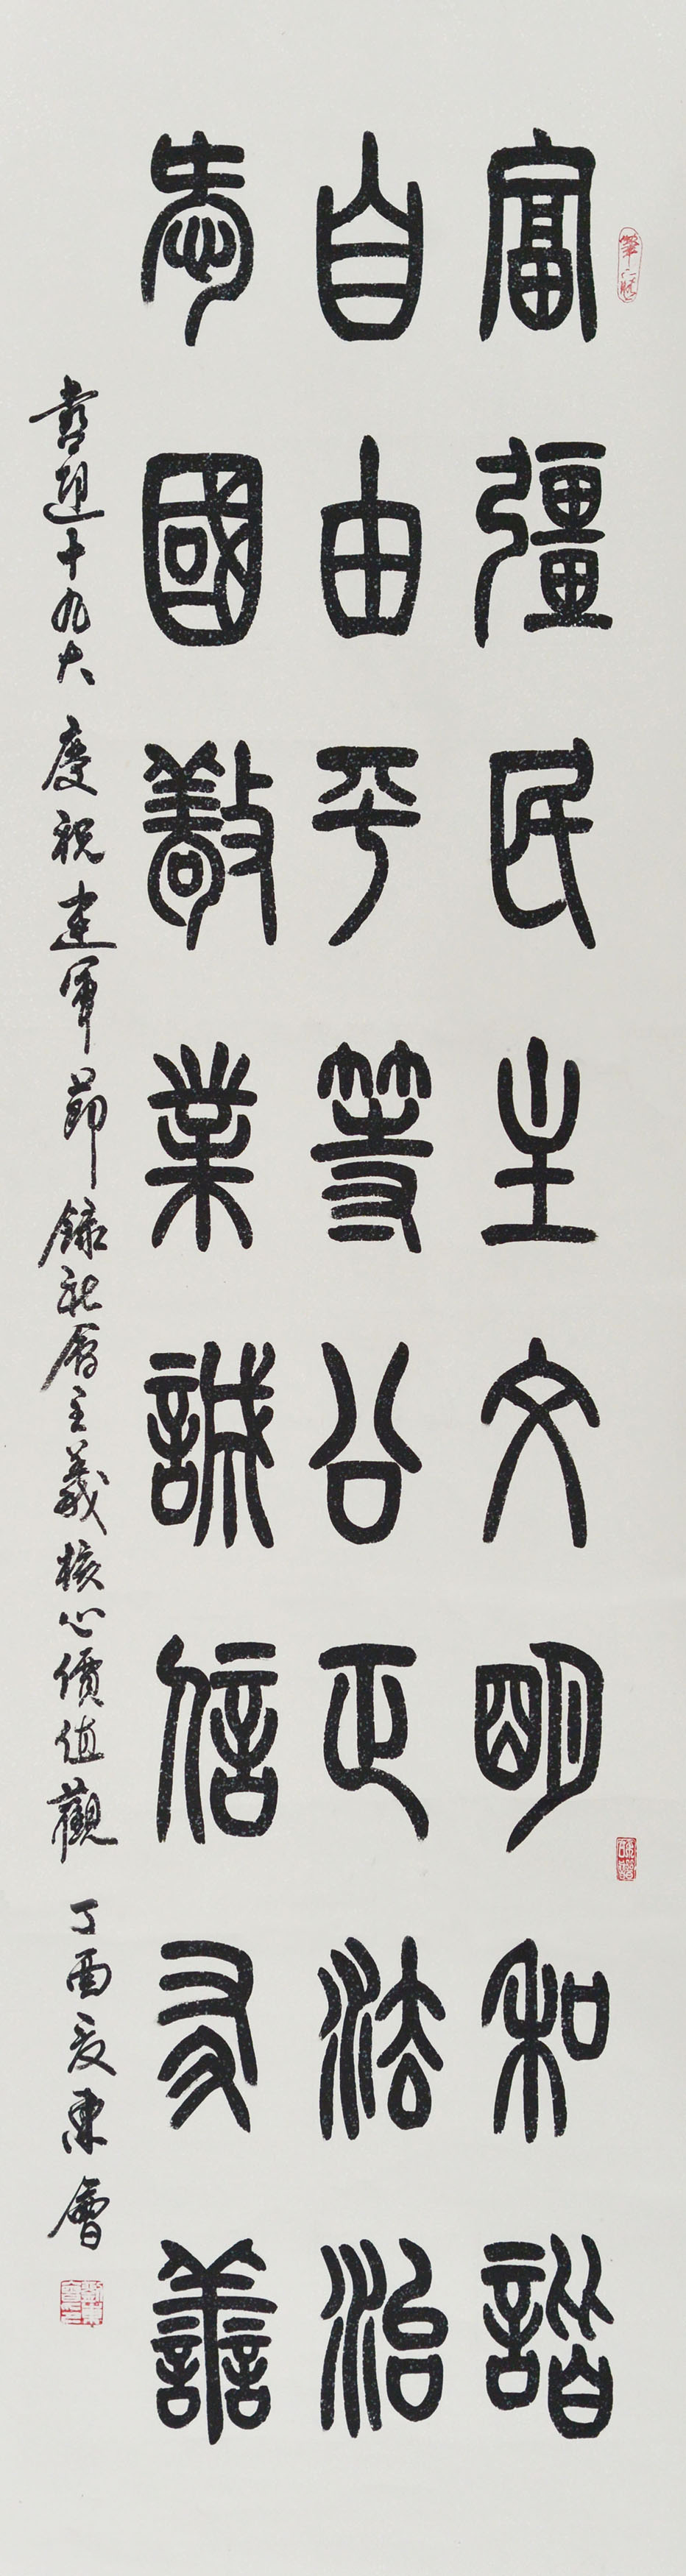 富彊民主文明和諧
自由平等公正法治
愛國敬業誠信友善
喜迎十九大慶祝建軍節錄社會主義核心價值觀丁酉夏東會